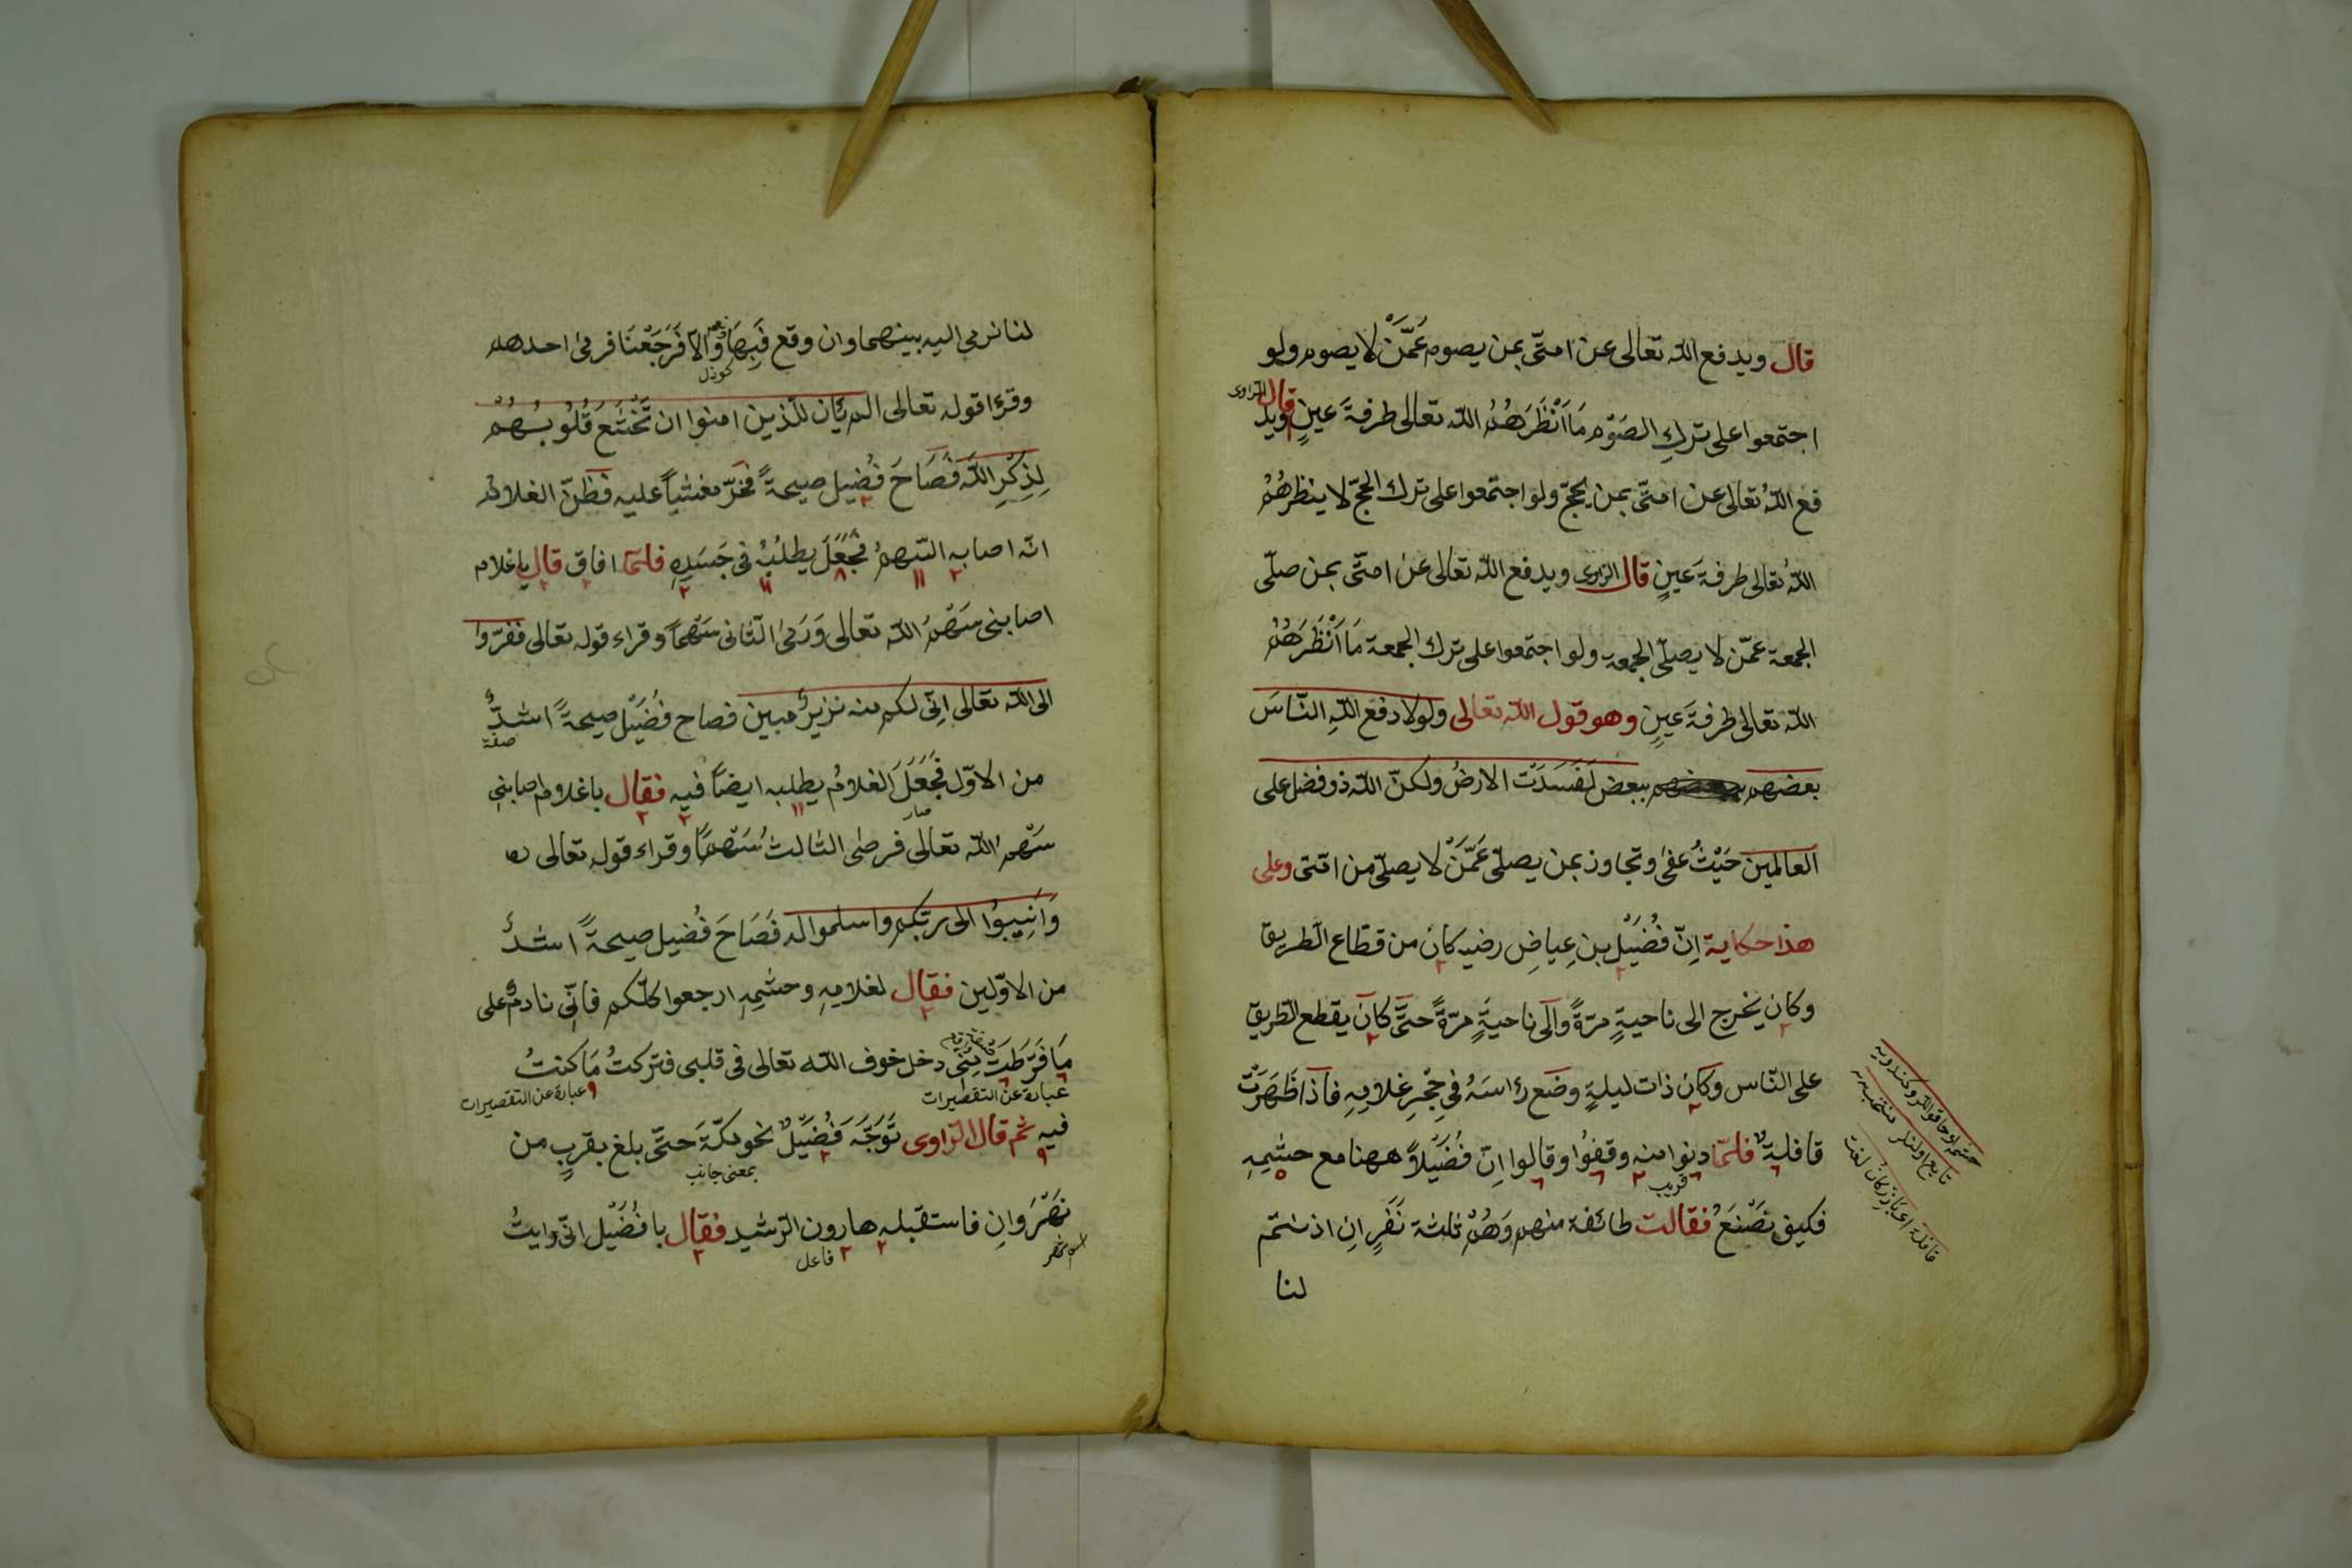 قال ويدفع الله تعالى عن امتى بمن يصوم عَمَّنْ لا يصوم ولو
اجتمعوا على تركِ الصَوْم مَا اَنْظَرَهُمُ الله تعالى طرفةَ عينٍ قال الراوى ويد
فع اللهُ تعالى عن امتى بمن يحجّ ولو اجتمعوا على ترك الحجّ لا ينظرهُمُ
اللهُ تعالى طرفةَ عينٍ قال الراوى ويدفع الله تعالى عن امتى بمن صلّى
الجمعة عمّن لا يصلّى الجمعة ولو اجتمعوا على ترك الجمعة مَا اَنْظَرَهُمُ
الله تعالى طرفةَ عينٍ وهو قول الله تعالى ولولا دفع اللهِ النّاسَ
بعضهم ببعض لَفَسَدَت الارضُ ولكنّ الله ذو فضل على
العالمين حَيْثُ عفى وتجاوز بمن يصلّى عَمَّنْ لا يصلّى من امتى وعلى
هذا حكاية اِنّ فُضَيْل بن عِياضِ رضيه كان من قطّاع الطّريق
وكان يخرج الى ناحيةٍ مرّةً والى ناحيةٍ مرّةً حتّى كان يقطع الطّريق
على النّاس وكان ذات ليلةٍ وضع رأسَهُ فى حِجْرِ غلامِهِ فاذا ظَهَرَتْ
قافلةٌ فلمّا دنوا منه وقفوُا وقالوا اِنّ فُضَيْلاً ههنا مع حشمِهِ
قريب
فكيف نَصْنَعُ فقالت طائفة منهم وَهُمْ ثلثة نَفَرٍ اِن اذنتم
لنا
لنا نرمى اليه بينهما وان وقع فَبِهَا وَاِلاّ فَرَجَعْنَا فرمى احدهم
وقرءا قوله تعالى الم يَأن للّذين امنوا ان تَخْشَعَ قُلُوبُهُمْ
لِذِكْرِ اللهِ فَصَاحَ فُضيل صيحةً فخرّ مغشياً عليه فظنّ الغلامُ
انّه اصابه السّهمُ فَجَعَلَ يطلُبُهُ فى جَسَدِهِ فلمّا افاق قال يا غلام
اصابنى سَهْمُ الله تعالى وَرَمىَ الثّانى سَهْماً وقراء قوله تعالى ففرّوا
الى الله تعالى اِنّى لكم منه نزيرٌ مبين فصاح فُضَيْل صيحةً اشدُّ
صفة
من الاوّل فَجَعَلَ الغلامُ يطلبه ايضاً فيه فقال يا غلام اصابنى
صار
سَهْمُ الله تعالى فرمى الثالثُ سَهْماً وقراء قوله تعالى
وَاَنِيبوُا الى ربّكم واسلموا له فَصَاحَ فُضيل صيحةً اشدُّ
من الاوّلين فقال لغلامِهِ وحشمِهِ ارجعوا كلّكم فانّى نادمٌ على
مَا فَرّطَتْ مِنّى دخل خوف الله تعالى فى قلبى فتركتُ مَا كنتُ
عبارة عن التقصيرات
فيه ثم قال الراوى تَوَجَّهَ فُضَيْلٌ نحو مكّةَ حتّى بلغ بقربٍ من
بمعنى جانب
نَهْرَوانِ فاستقبله هارون الرّشيد فقال يا فُضَيْل انّى رايتُ
فاعل